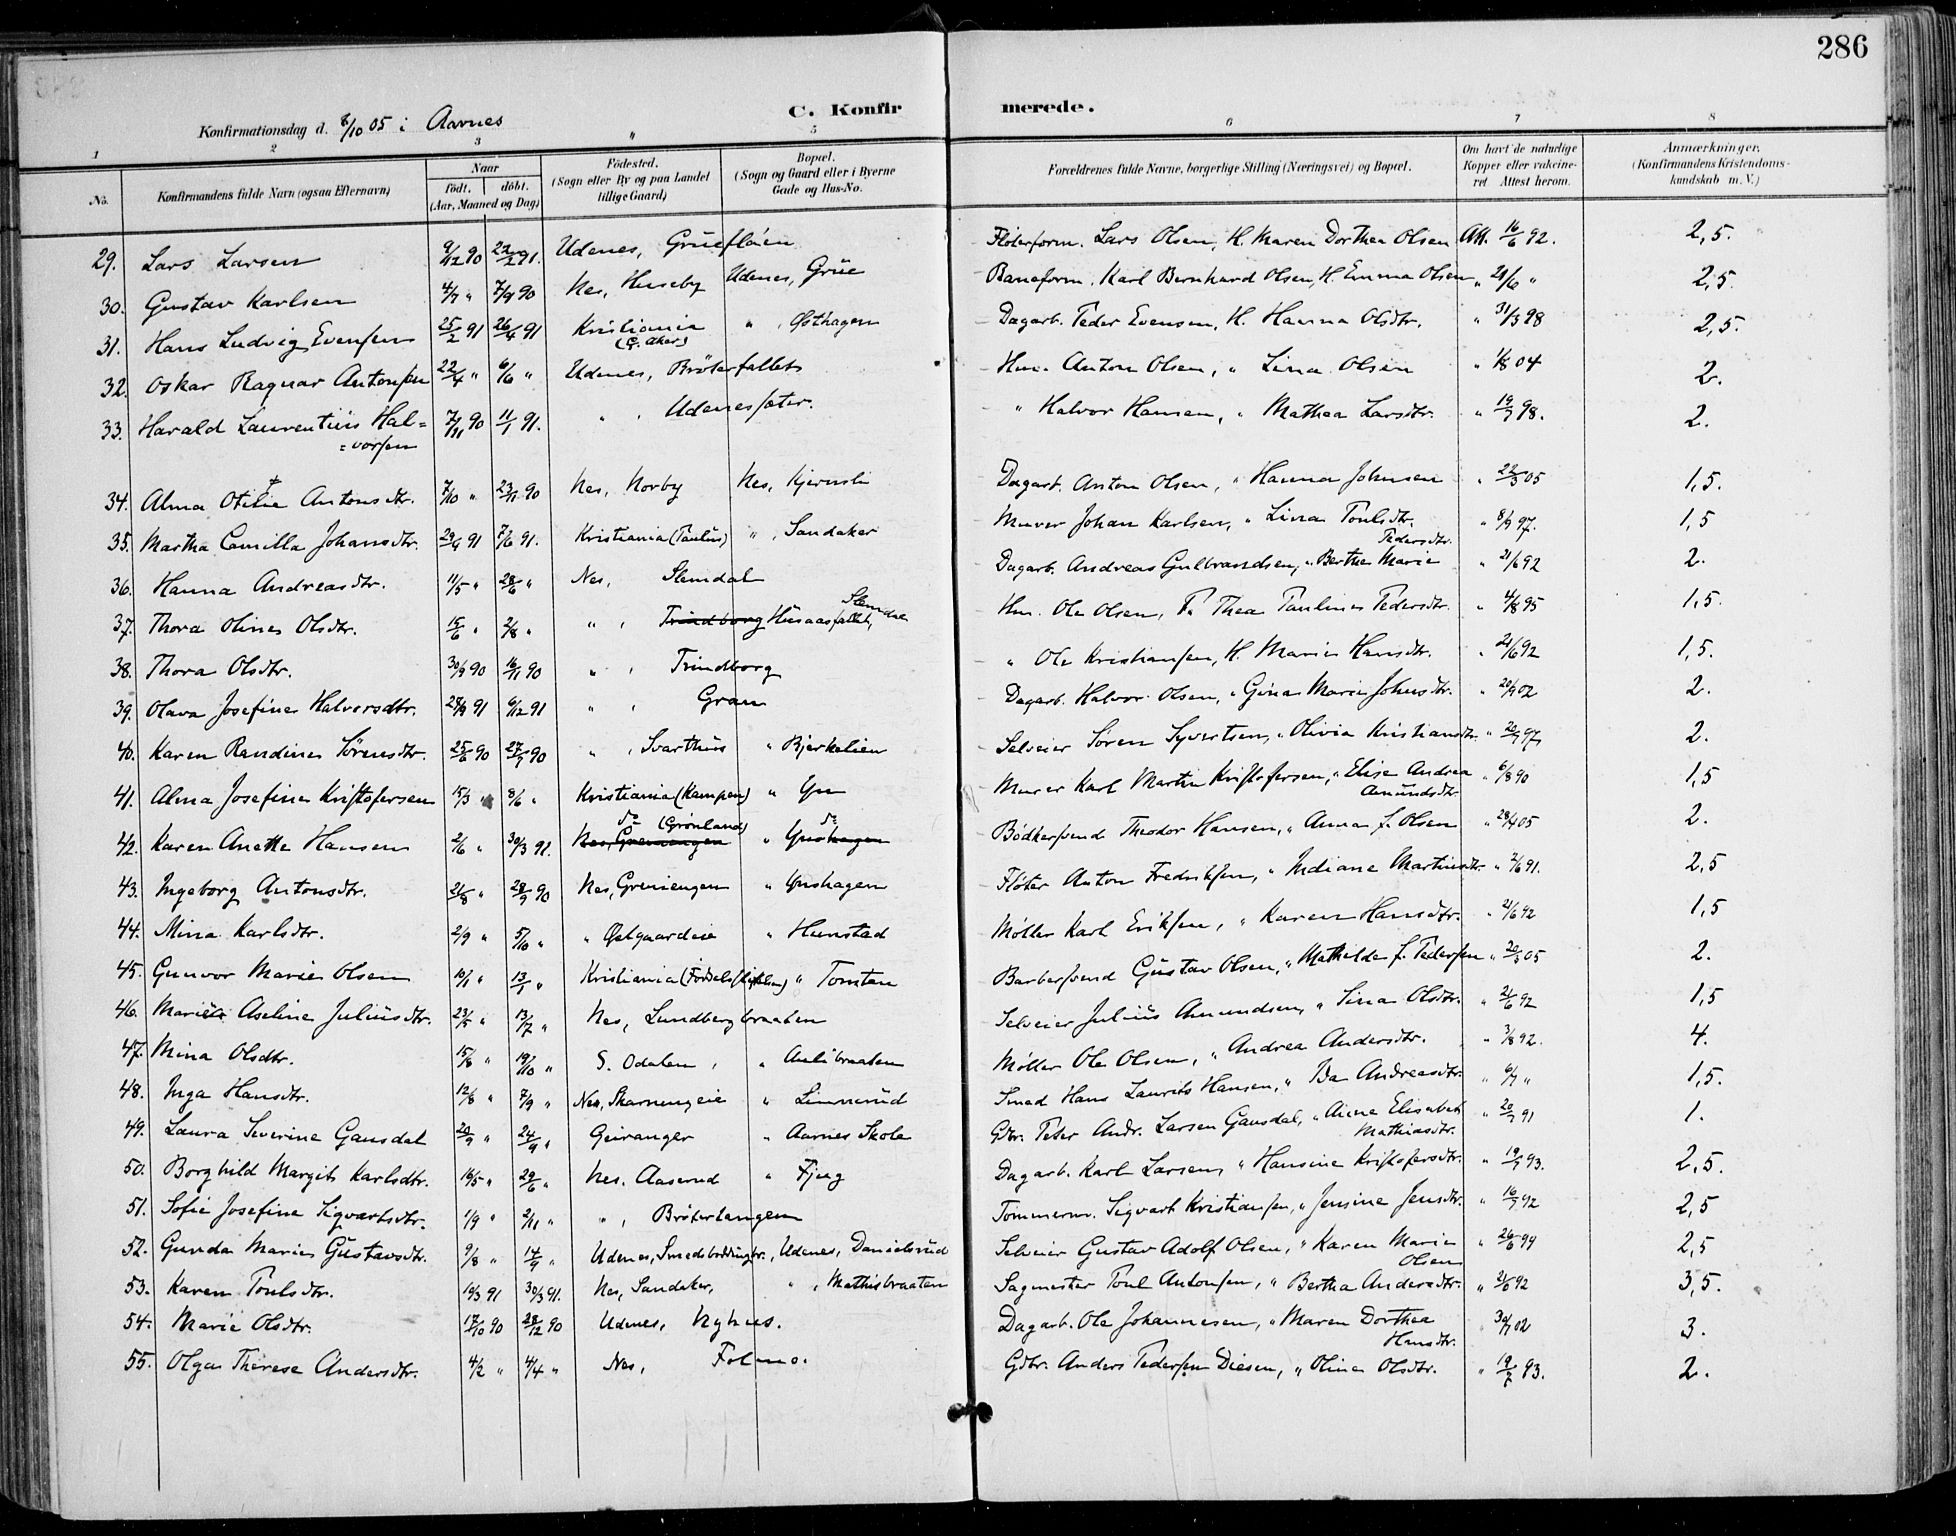 286
C. Konfirmerede.
Konfirmationsdag d. 8/10 05 i Aarnes
1 2 3 " 5 6 7 8
No. Konfirmandens fulde Navn (ogsaa Efternavn) Naar födt. döbt. (Aar, Maaned og Dag) Födested. (Sogn eller By og paa Landet tillige Gaard) Bopæl. (Sogn og Gaard eller i Byerne Gade og Hus-No. Forældrenes fulde Navne, borgerlige Stilling (Næringsvei) og Bopæl. Om havt de naturlige Kopper eller vakcineret Attest herom. Anmærkninger. (Konfirmandens Kristendomskundskab m. V.)
29. Lars Larsen 9/12 90 22/2 91. Udenes, Grüefløien Fløterform. Lars Olsen, H. Maren Dorthea Olsen Att. 16/6 92. 2,5.
30. Gustav Karlsen 4/7 " 7/9 90 Nes, Huseby Udenes, Grüe Baneform. Karl Bernhard Olsen, H. Emma Olsen " 21/6 " 2,5.
31. Hans Ludvig Evensen 25/2 91 26/4 91 Kristiania (G. Aker) " , Østhagen Dagarb. Peder Evensen, H. Hanna Olsdtr. " 31/3 98 2,5.
32. Oskar Ragnar Antonsen 22/4 " 6/6 " Udenes, Bröterfallet Hm. Anton Olsen, " Lina Olsen " 1/8 04 2.
33. Harald Laurentius Hal=
=vorsen 7/11 90 11/1 91. " , Udenessæter. " Halvor Hansen, " Mathea Larsdtr. " 19/7 98. 2.
34. Alma Otilie Antonsdtr. 7/10 " 23/11 90 Nes, Norby Nes, Kjernsli Dagarb. Anton Olsen, " Hanna Johnsen " 22/5 05 1,5.
35. Martha Camilla Johansdtr. 29/4 91 7/6 91. Kristiania (Paulus) " , Sandaker Murer Johan Karlsen, " Lina Poulsdtr. " 8/9 97. 1,5
36. Hanna Andreasdtr. 11/5 " 28/6 " Nes, Slemdal Dagarb. Andreas Gulbrandsen, " Berthe Marie Pedersdtr. " 21/6 92 2.
37. Thora Olines Olsdtr. 15/6 " 2/8 " " , Trindborg Husaasfallet, Slemdal Hm. Ole Olsen, F. Thea Paulines Pedersdtr. " 4/8 95 1,5.
38. Thora Olsdtr. 30/9 90 16/11 90 " , Trindborg " Ole Kristiansen, H. Maries Hansdtr. " 21/6 92 1,5.
39. Olava Josefines Halvorsdtr. 6/12 91 " , Gran Dagarb. Halvor Olsen, " Gina Marie Johnsdtr. " 20/9 02 2.
40. Karen Randines Sørensdtr. 25/6 90 27/7 90 " , Svarthus " Bjerkelien Selveier Søren Syvertsen, " Olivia Kristiansdtr. " 20/7 97 2.
41. Alma Josefines Kristofersen 15/3 " 8/6 " Kristiania (Kampen) " Yn Murer Karl Martin Kristofersen, " Elise Andrea Amundsdtr. " 6/8 90 1,5
42. Karen Anette Hansen 2/6 " 30/3 91. do (Grönland) Nes, Greniengen " Ynshagen do Bödkersvend Theodor Hansen, " Anna f. Olsen " 28/4 05 2.
43. Ingeborg Antonsdtr. 2/8 " 28/9 90 Nes, Greniengen " Ynshagen Fløter Anton Fredriksen, " Indiane Martinsdtr. " 2/6 91. 2,5
44. Mina Karlsdtr. 2/9 " 5/10 " " Østgaardeie " Hunstad Møller Karl Eriksen, " Karen Hansdtr. " 21/6 92 1,5
45. Gunvor Maries Olsen 10/1 " 13/1 " Kristiania (Födselsstiftelsen) " Tomten Barbersvend Gustav Olsen, " Mathilde f. Pedersen " 22/5 05 2.
46. Mariele Aseline Juliusdtr. 23/5 " 13/7 " Nes, Lundbergbraaten Selveier Julius Amundsen, " Lina Olsdtr. " 21/6 92 1,5
47. Mina Olsdtr. 15/6 " 19/10 " S. Odalen, " Aulibraaten Møller Ole Olsen, " Andrea Andersdtr. " 3/8 92. 4.
48. Inga Hansdtr. 12/8 " 7/9 " Nes, Skarnungeie " Linnerud Smed Hans Laurits Hansen, " Ida Andreasdtr. " 6/7 " 1,5.
49. Laura Severine Gausdal 20/9 " 24/9 " Geiranger " Aarnes Skole Gbr. Peter Andr. Larsen Gausdal, " Anne Elisabet Mathiasdtr. " 20/7 91 1.
50. Borghild Margit Karlsdtr. 16/5 " 29/6 " Nes, Aaserud " Fjerg Dagarb. Karl Larsen, " Hansine Kristofersdtr. " 19/7 93. 2,5.
51. Sofie Josefine Sigvartsdtr. 1/9 " 2/11 " " , Bröterlangen Tömmerm. Sigvart Kristiansen, " Jensine Jensdtr. " 16/7 92 2,5
52. Gunda Maries Gustavsdtr. 9/8 " 14/9 " Udenes, Smedsböddingbr., Udenes, Danielsrud Selveier Gustav Adolf Olsen, " Karen Marie Olsen " 26/6 94 2,5
53. Karen Poulsdtr. 14/3 91 30/3 91. Nes, Sandaker, " , Mathisbraaten Sagmester Poul Antonsen, " Bertha Andersdtr. " 21/6 92 3,5.
54. Marie Olsdtr. 17/10 90 28/12 90 Udenes, Nyhus. Dagarb. Ole Johannesen, " Maren Dorthea Hansdtr. " 30/7 02 3.
55. Olga Therese Andersdtr. 4/2 " 4/4 " Nes, Folmo. Gdbr. Anders Pedersen Diesen, " Olines Olsdtr. " 19/7 93. 2.